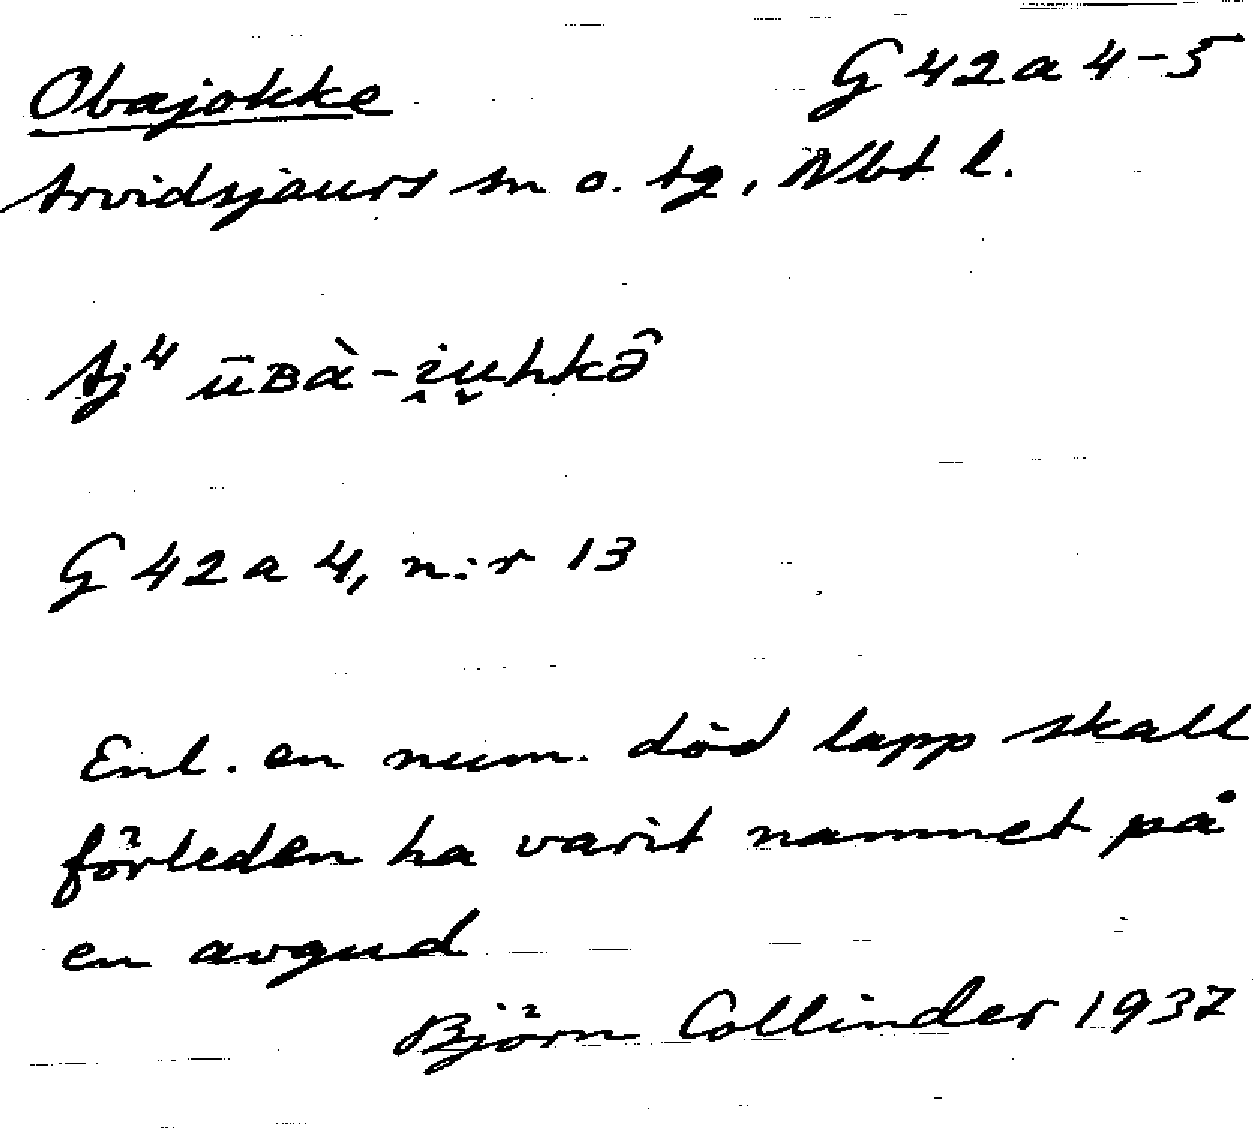 Obajokke G 42 a 4-5
Arvidsjaurs sn o. tg, Nbt l.
Aj⁴ ūʙὰ-i̯u̯hkə̑
G 42 a 4, n:r 13
Enl. en num. död lapp skall
förleden ha varit namnet på
en avgud
Björn Collinder 1937